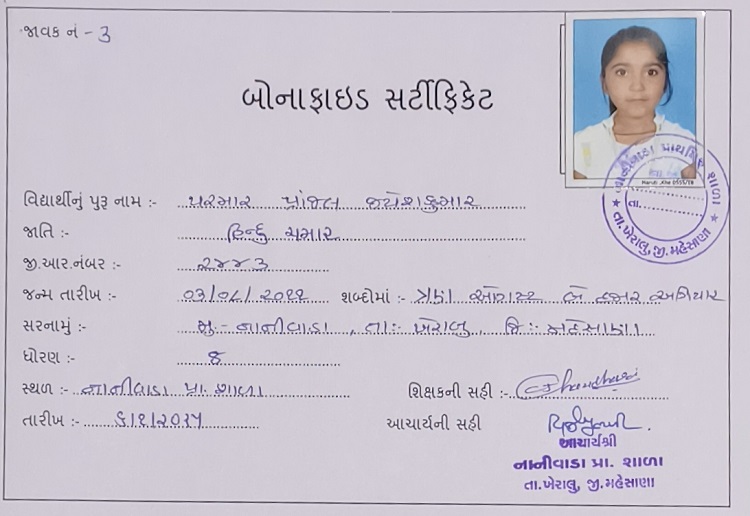 જાવક નં - 3
બોનાફાઇડ સર્ટીફિકેટ
વિદ્યાર્થીનું પુરૂ નામ :- પરમાર પ્રાંજલ જયેશકુમાર
જાતિ :- હિન્દુ ચમાર
જી.આર.નંબર :- ૨૪૪૩
જન્મ તારીખ :- ૦૩/૦૮/૨૦૧૧ શબ્દોમાં :- ત્રણ ઓગસ્ટ બે હજાર અગિયાર
સરનામું :- મુ.- નાનીવાડા, તાઃ- ખેરાલુ, જિઃ- મહેસાણા
ધોરણ :- ૪
સ્થળ :- નાનીવાડા પ્રા. શાળા
શિક્ષકની સહી :-
તારીખ :-
આચાર્યની સહી
આચાર્યશ્રી
નાનીવાડા પ્રા. શાળા
તા.ખેરાલુ, જી.મહેસાણા
નાનીવાડા પ્રાથમિક શાળા
તા.
તા.ખેરાલુ, જી.મહેસાણા